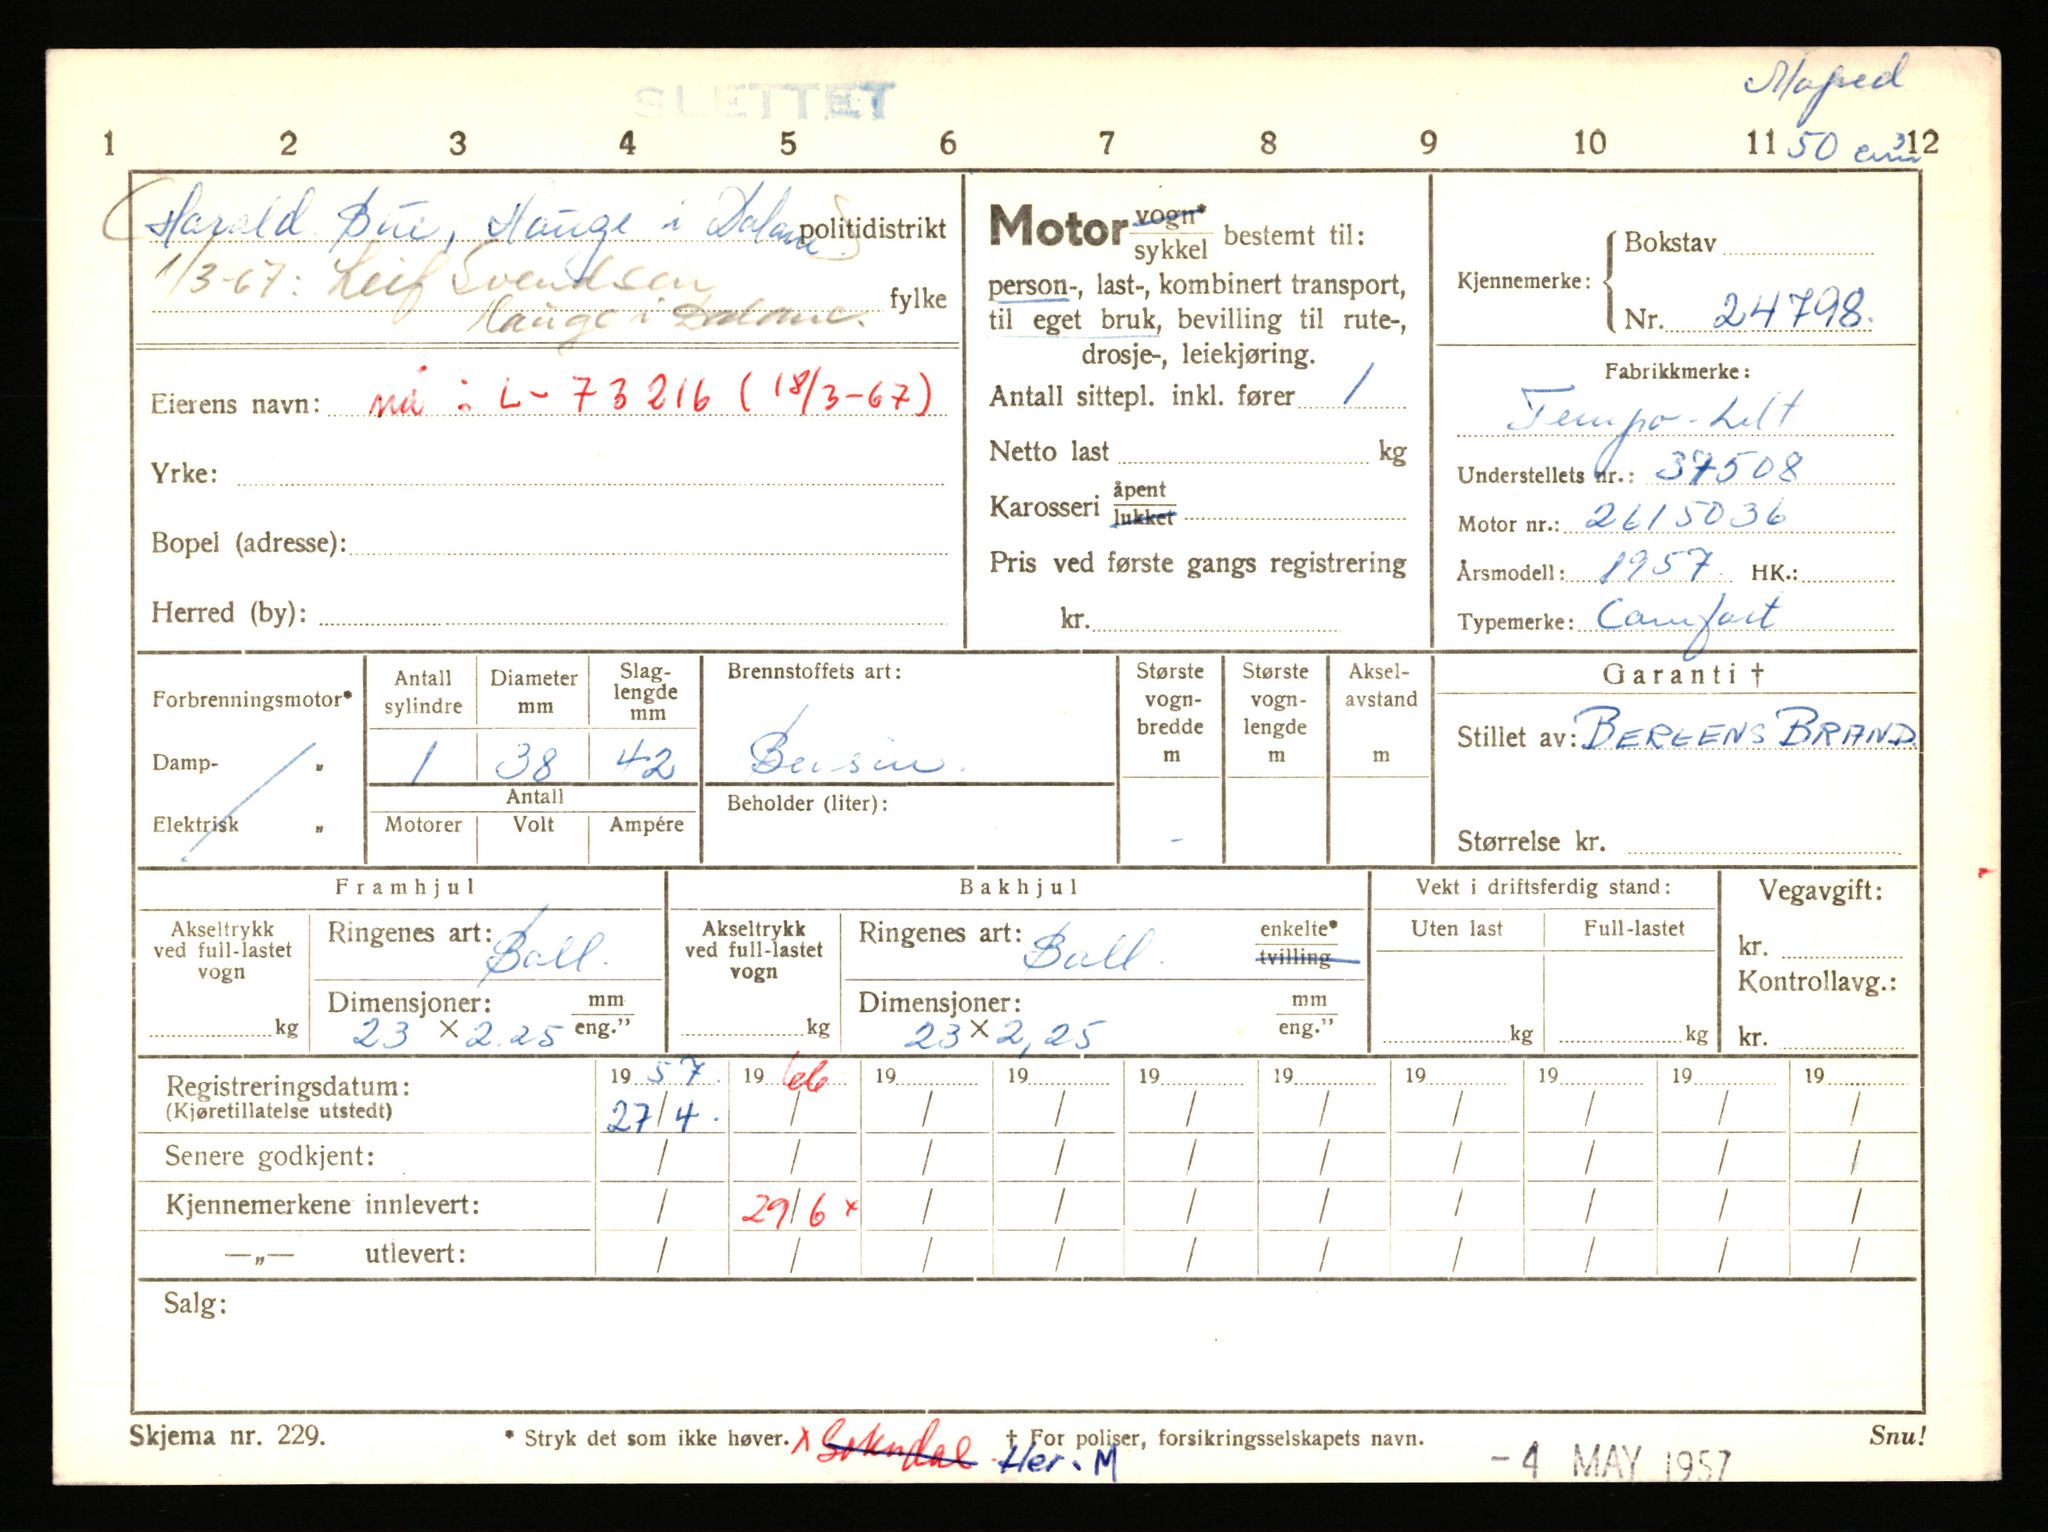 SLETTET
Moped
1 2 3 4 5 6 7 8 9 10 11 12
50 cm3
Harald Bue, Hauge i Dalane politidistrikt
1/3-67: Leif Svendsen
Hauge i Dalane. fylke
Eierens navn: nå : L- 73216 (18/3-67)
Yrke:
Bopel (adresse):
Herred (by):
Motor vogn* sykkel bestemt til:
person-, last-, kombinert transport,
til eget bruk, bevilling til rute-,
drosje-, leiekjøring.
Antall sittepl. inkl. fører 1
Netto last kg
Karosseri åpent lukket
Pris ved første gangs registrering
kr.
Kjennemerke: Bokstav
Nr. 24798.
Fabrikkmerke:
Tempo-Lett
Understellets nr.: 37508
Motor nr.: 2615036
Årsmodell: 1957. HK.:
Typemerke: Comfort
Forbrenningsmotor*
Damp- „
Elektrisk „
Antall sylindre Diameter mm Slag-lengde mm
1 38 42
Antall
Motorer Volt Ampére
Brennstoffets art:
Bensin.
Beholder (liter):
Største vogn-bredde m
Største vogn-lengde m
Aksel-avstand m
-
Garanti †
Stillet av: BERGENS BRAND.
Størrelse kr.
Framhjul
Akseltrykk ved full-lastet vogn
kg
Ringenes art: Ball.
Dimensjoner: mm eng."
23 x 2.25
Bakhjul
Akseltrykk ved full-lastet vogn
kg
Ringenes art: Ball. enkelte* tvilling
Dimensjoner: mm eng."
23 x 2,25
Vekt i driftsferdig stand:
Uten last Full-lastet
kg kg
Vegavgift:
kr.
Kontrollavg.:
kr.
Registreringsdatum: 19 57. 19 66 19 19 19 19 19 19 19 19
(Kjøretillatelse utstedt) 27/4. / / / / / / / / /
Senere godkjent: / / / / / / / / / /
Kjennemerkene innlevert: / 29/6 x / / / / / / / /
—„— utlevert: / / / / / / / / / /
Salg:
Skjema nr. 229. * Stryk det som ikke høver. x Sokndal † For poliser, forsikringsselskapets navn. Snu!
Her. M
- 4 MAY 1957